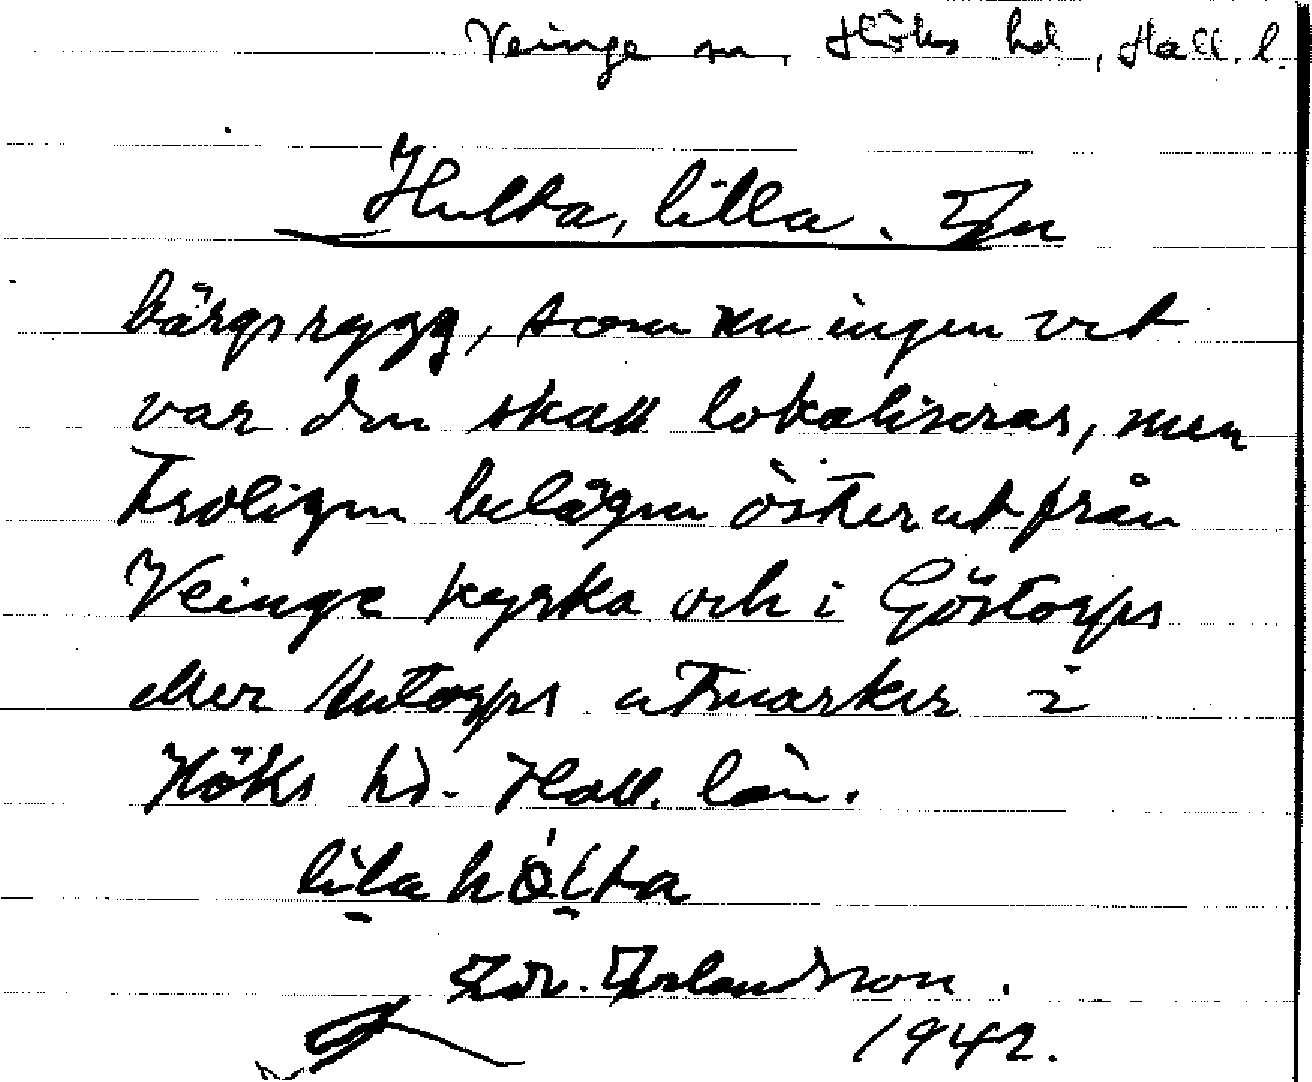 Veinge sn, Höks hd, Hall. l.
Hulta, lilla. En
bärgsrygg, som nu ingen vet
var den skall lokaliseras, men
troligen belägen österut från
Veinge kyrka och i Göstorps
eller utmarker i
Höks hd. Hall. län.
lila hölta
Edv. Erlandsson.
1942.